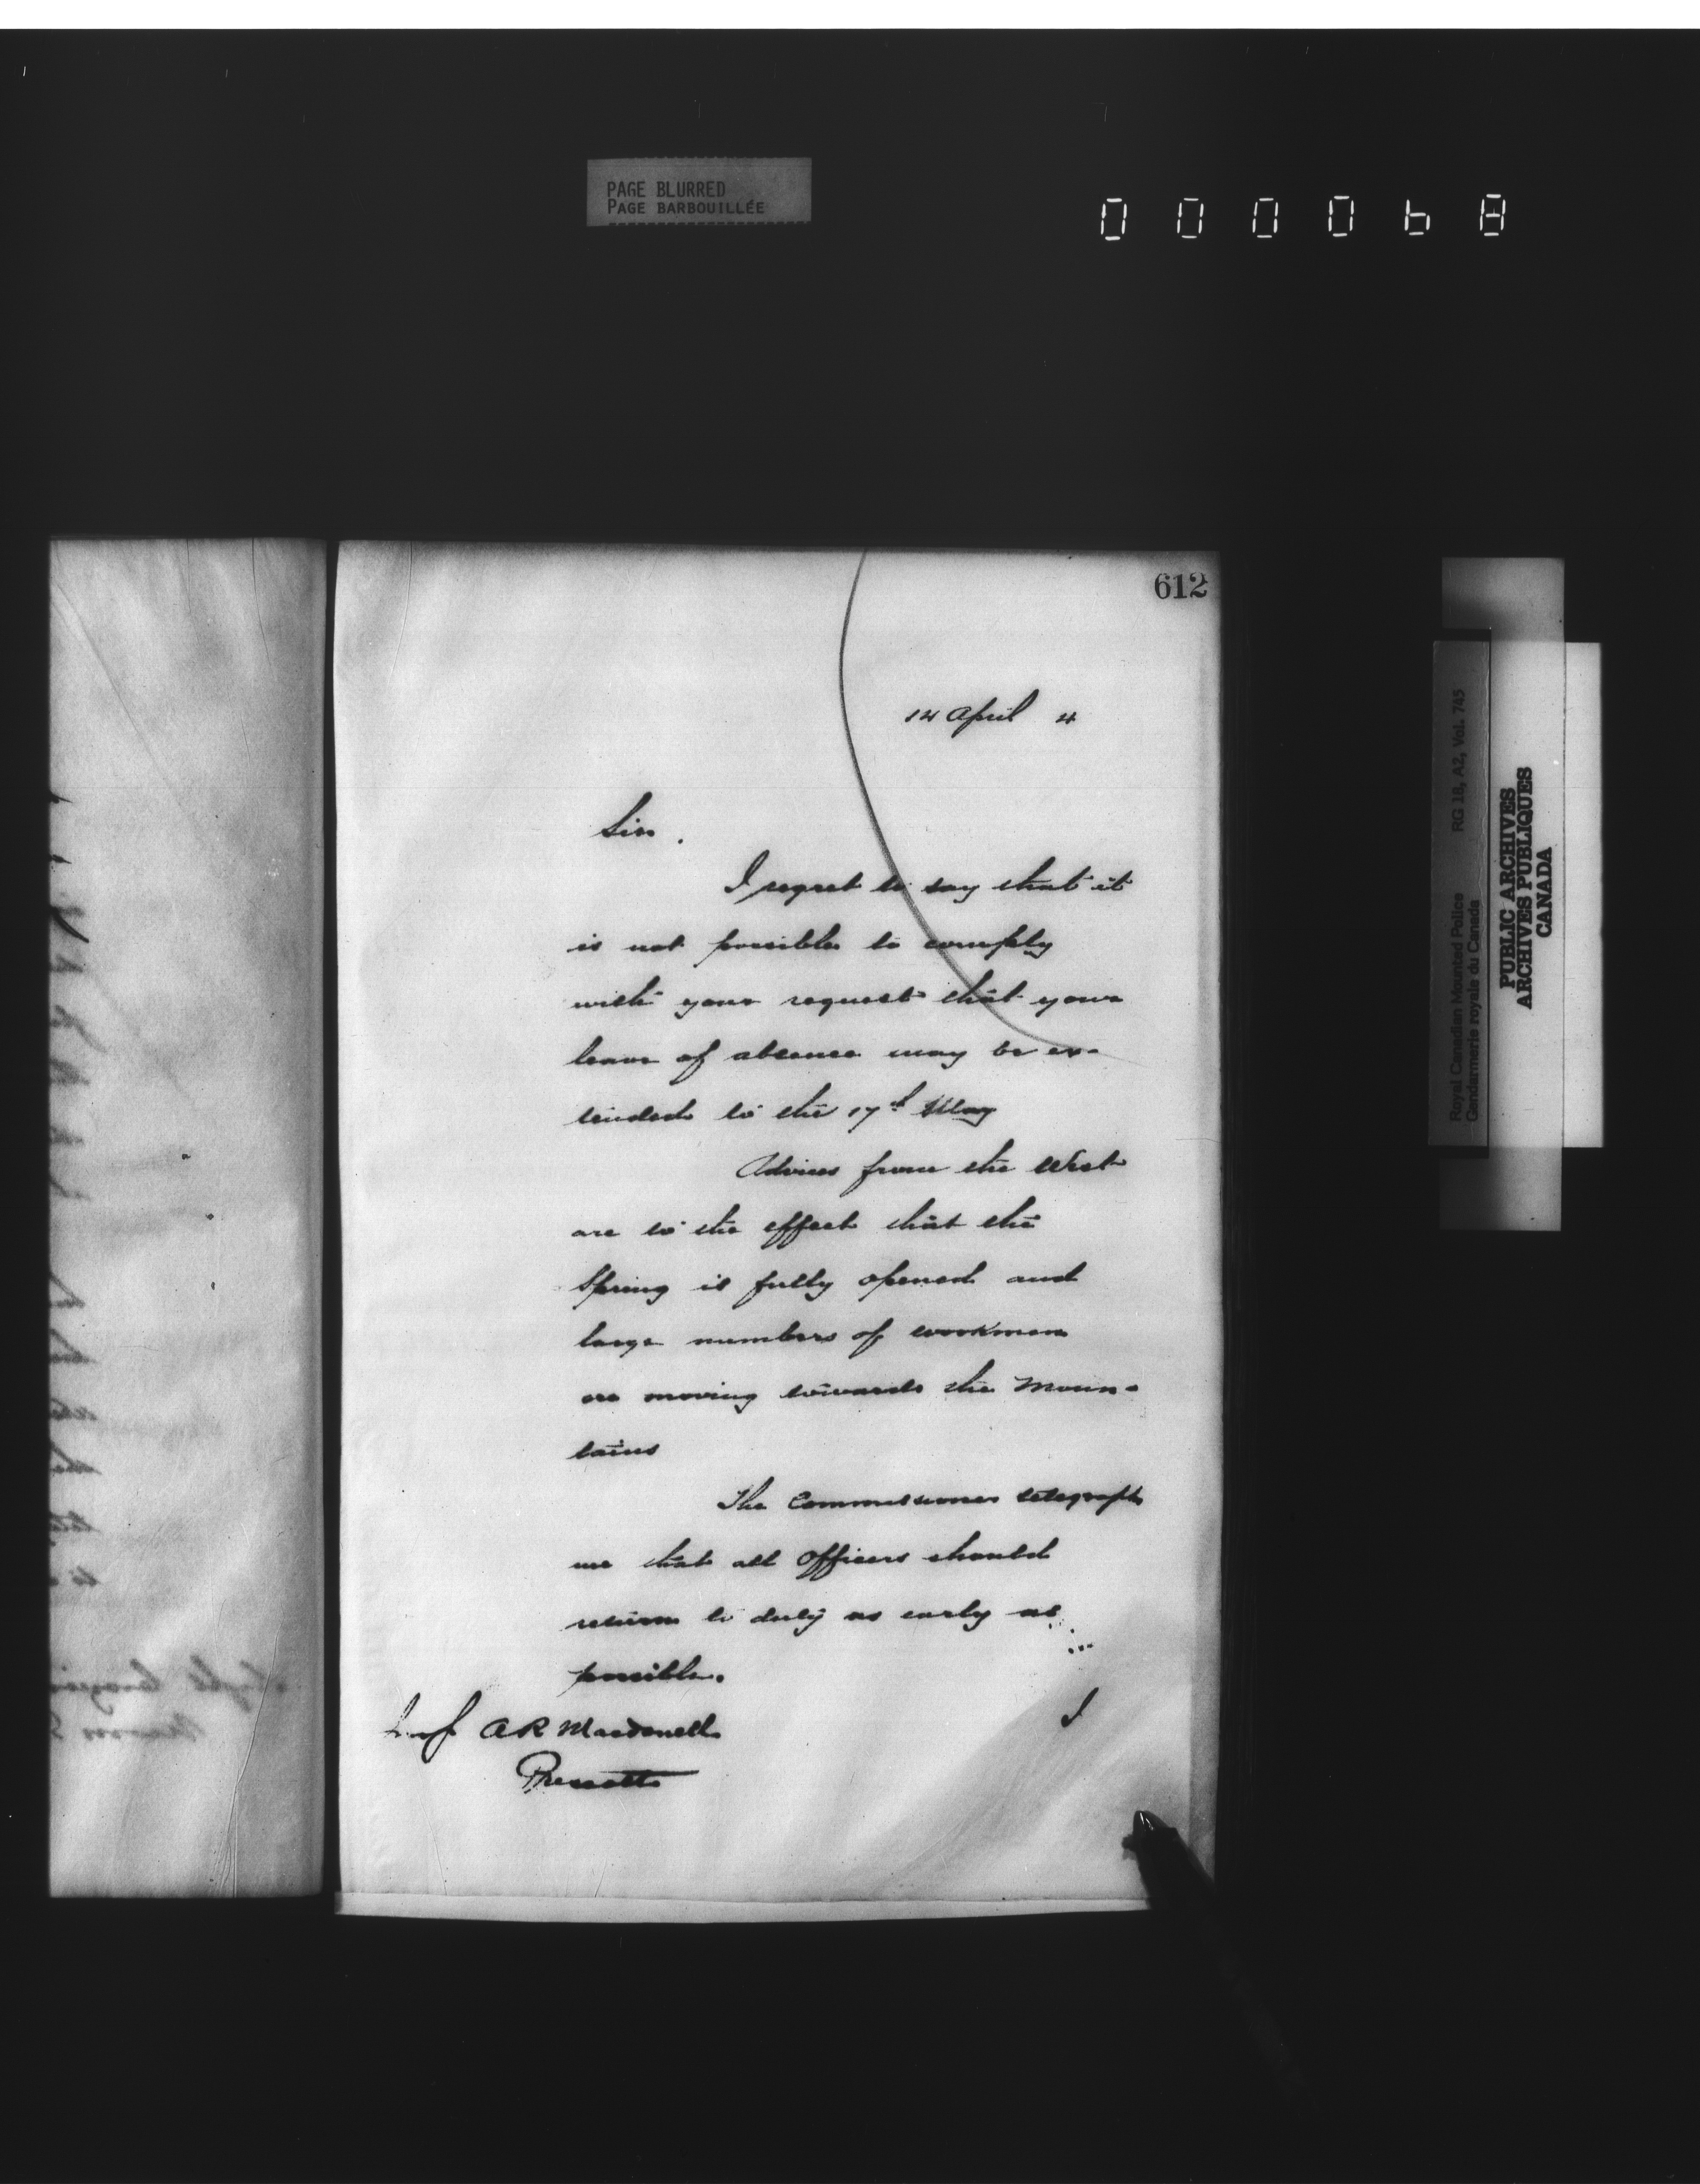 PAGE BLURRED
PAGE BARBOUILLÉE
000068
612
14 April 4
Sir.
I regret to say that it
is not possible to comply
with your request that your
leave of absence may be ex-
tended to the 17th May
Advices from the West
are to the effect that the
Spring is fully opened and
large numbers of workmen
are moving towards the Moun-
tains
The Commissioner telegraphs
me that all Officers should
return to duty as early as
possible.
I
A R Macdonell
Prescott
Royal Canadian Mounted Police RG 18, A2, Vol. 745
Gendarmerie royale du Canada
PUBLIC ARCHIVES
ARCHIVES PUBLIQUES
CANADA